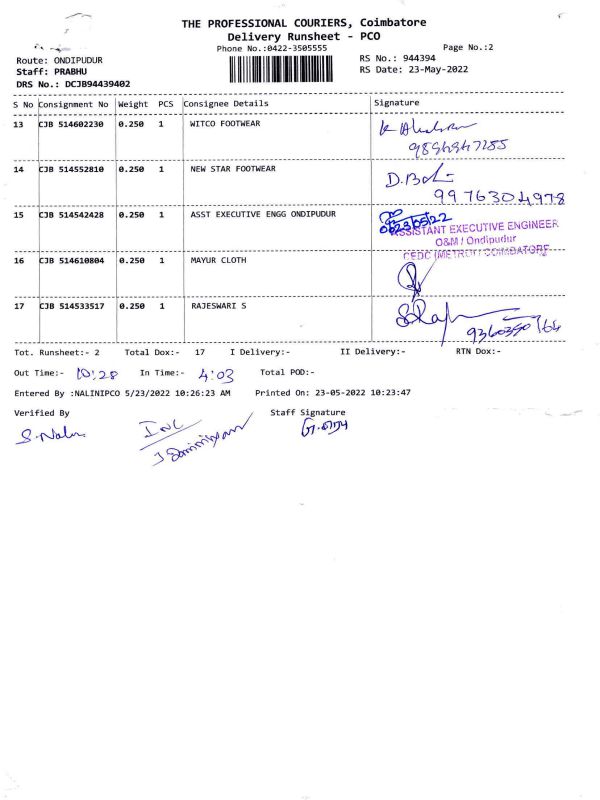 THE PROFESSIONAL COURIERS, Coimbatore
Delivery Runsheet - PCO
Phone No.:0422-3505555
Page No.:2
Route: ONDIPUDUR
RS No.: 944394
Staff: PRABHU
RS Date: 23-May-2022
DRS No.: DCJB94439402
S No Consignment No Weight PCS Consignee Details Signature
13 CJB 514602230 0.250 1 WITCO FOOTWEAR
14 CJB 514552810 0.250 1 NEW STAR FOOTWEAR
9976304978
15 CJB 514542428 0.250 1 ASST EXECUTIVE ENGG ONDIPUDUR
23/05/22
ASSISTANT EXECUTIVE ENGINEER
O&M / Ondipudur
CEDC (METRO) / COIMBATORE
16 CJB 514610804 0.250 1 MAYUR CLOTH
17 CJB 514533517 0.250 1 RAJESWARI S
Tot. Runsheet:- 2 Total Dox:- 17 I Delivery:- II Delivery:- RTN Dox:-
Out Time:- 10:28 In Time:- 4:03 Total POD:-
Entered By :NALINIPCO 5/23/2022 10:26:23 AM Printed On: 23-05-2022 10:23:47
Verified By Staff Signature